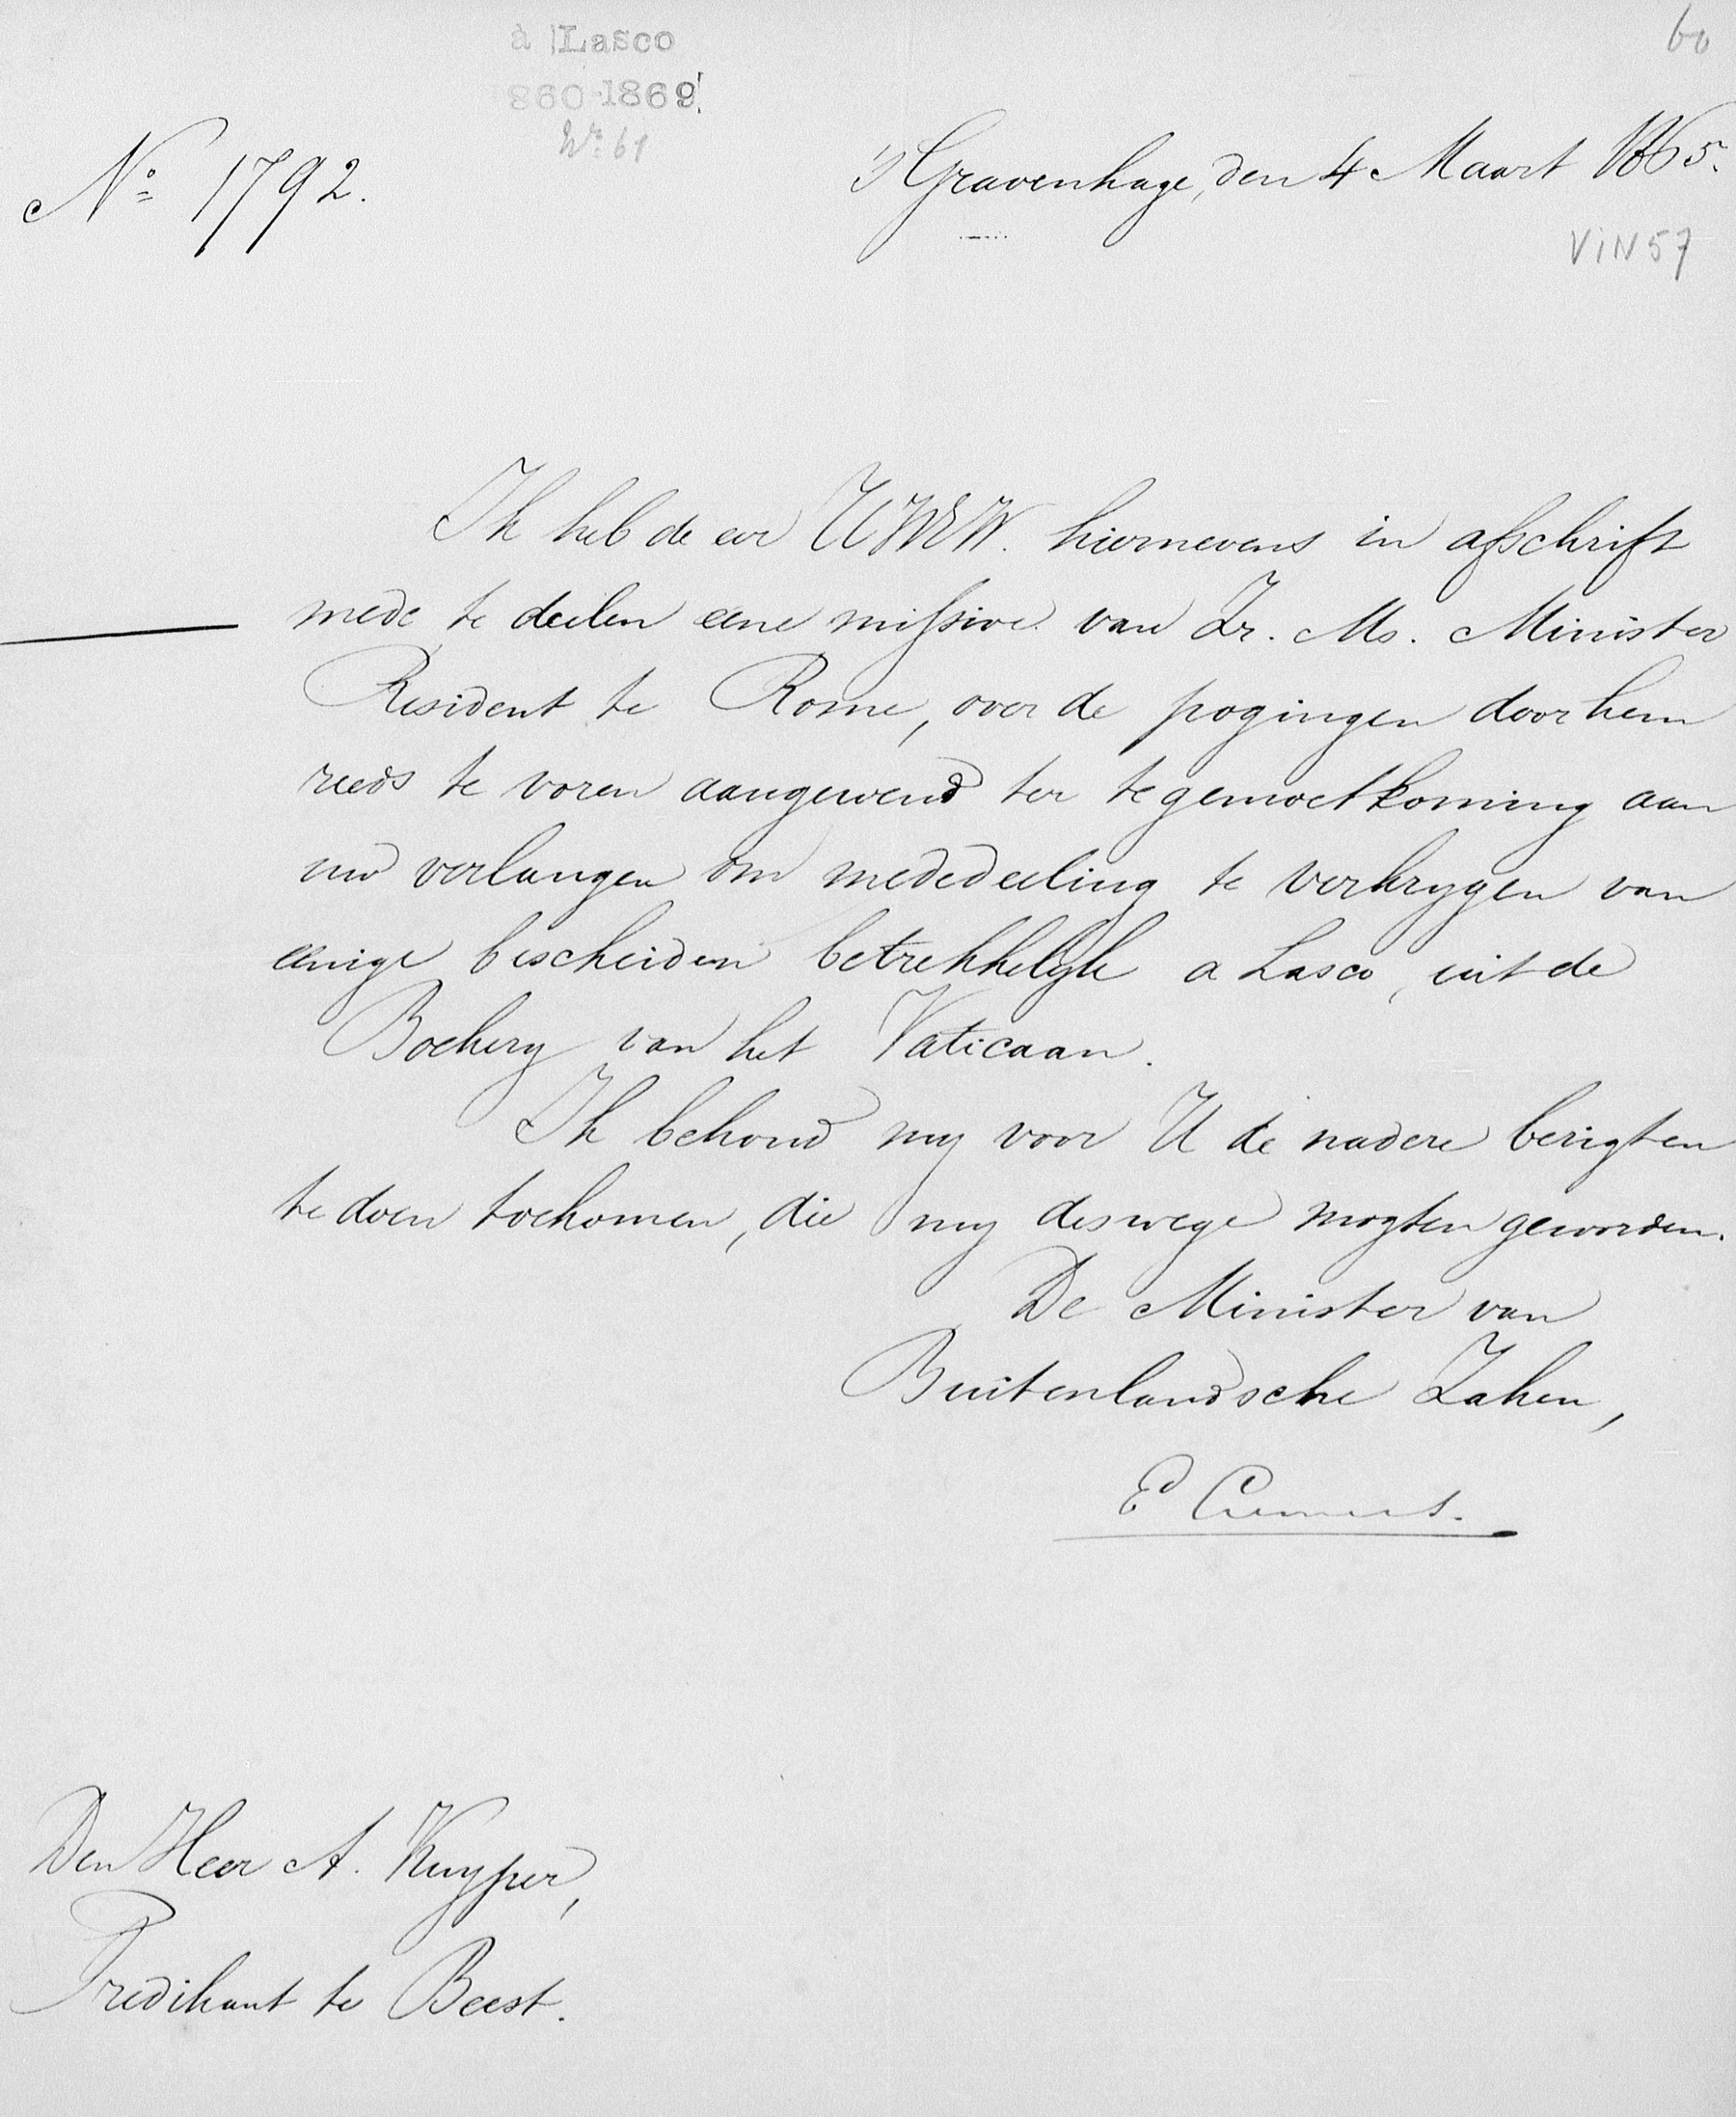 à Lasco
1860-1869
No. 61
60
No. 1792.
's Gravenhage, den 4 Maart 1865.
VIN57
Ik heb de eer UWEW. hiernevens in afschrift
mede te deelen eene missive van Zr. Ms. Minister
Resident te Rome, over de pogingen door hem
reeds te voren aangewend ter tegemoetkoming aan
uw verlangen om mededeeling te verkrygen van
eenige bescheiden betrekkelyk a Lasco, uit de
Boekery van het Vaticaan.
Ik behoud my voor U de nadere berigten
te doen toekomen, die my deswege mogten geworden.
De Minister van
Buitenlandsche Zaken,
E Cremers.
Den Heer A. Kuyper,
Predikant te Beest.